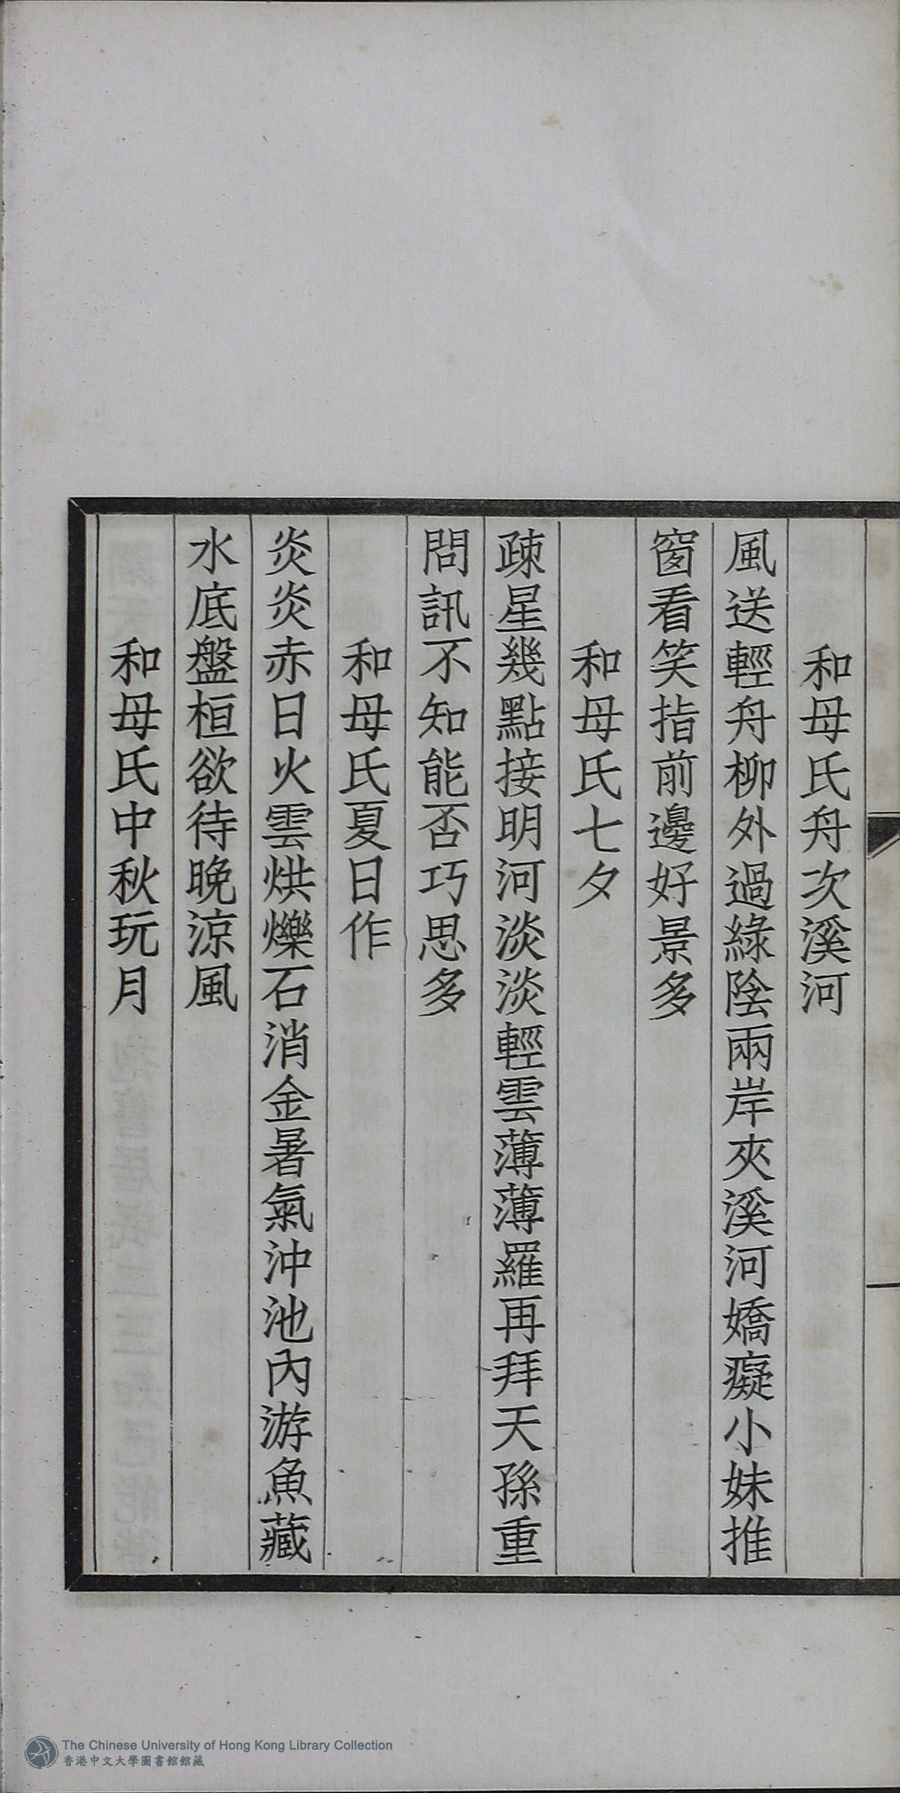 和母氏舟次溪河
風送輕舟柳外過綠陰兩岸夾溪河嬌癡小妹推
窗看笑指前邊好景多
和母氏七夕
疎星幾點接明河淡淡輕雲薄薄羅再拜天孫重
問訊不知能否巧思多
和母氏夏日作
炎炎赤日火雲烘爍石消金暑氣沖池內游魚藏
水底盤桓欲待晚涼風
和母氏中秋玩月
The Chinese University of Hong Kong Library Collection
香港中文大學圖書館館藏